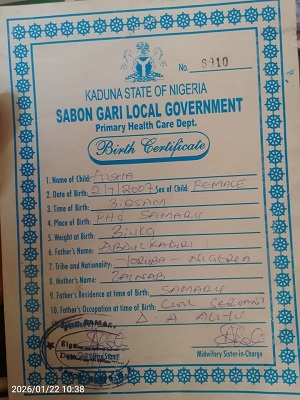 No. 8910
KADUNA STATE OF NIGERIA
SABON GARI LOCAL GOVERNMENT
Primary Health Care Dept.
Birth Certificate
1. Name of Child: AISHA
2. Date of Birth: 2/7/2007 Sex of Child: FEMALE
3. Time of Birth:
4. Place of Birth: PHC SAMARU
5. Weight at Birth:
6. Father's Name: ABDULKADIRI
7. Tribe and Nationality: YORUBA - NIGERIA
8. Mother's Name: ZAINAB
9. Father's Residence at time of Birth: SAMARU
10. Father's Occupation at time of Birth: CIVIL SERVANT
Sign
Midwifery Sister-in-Charge
2026/01/22 10:38